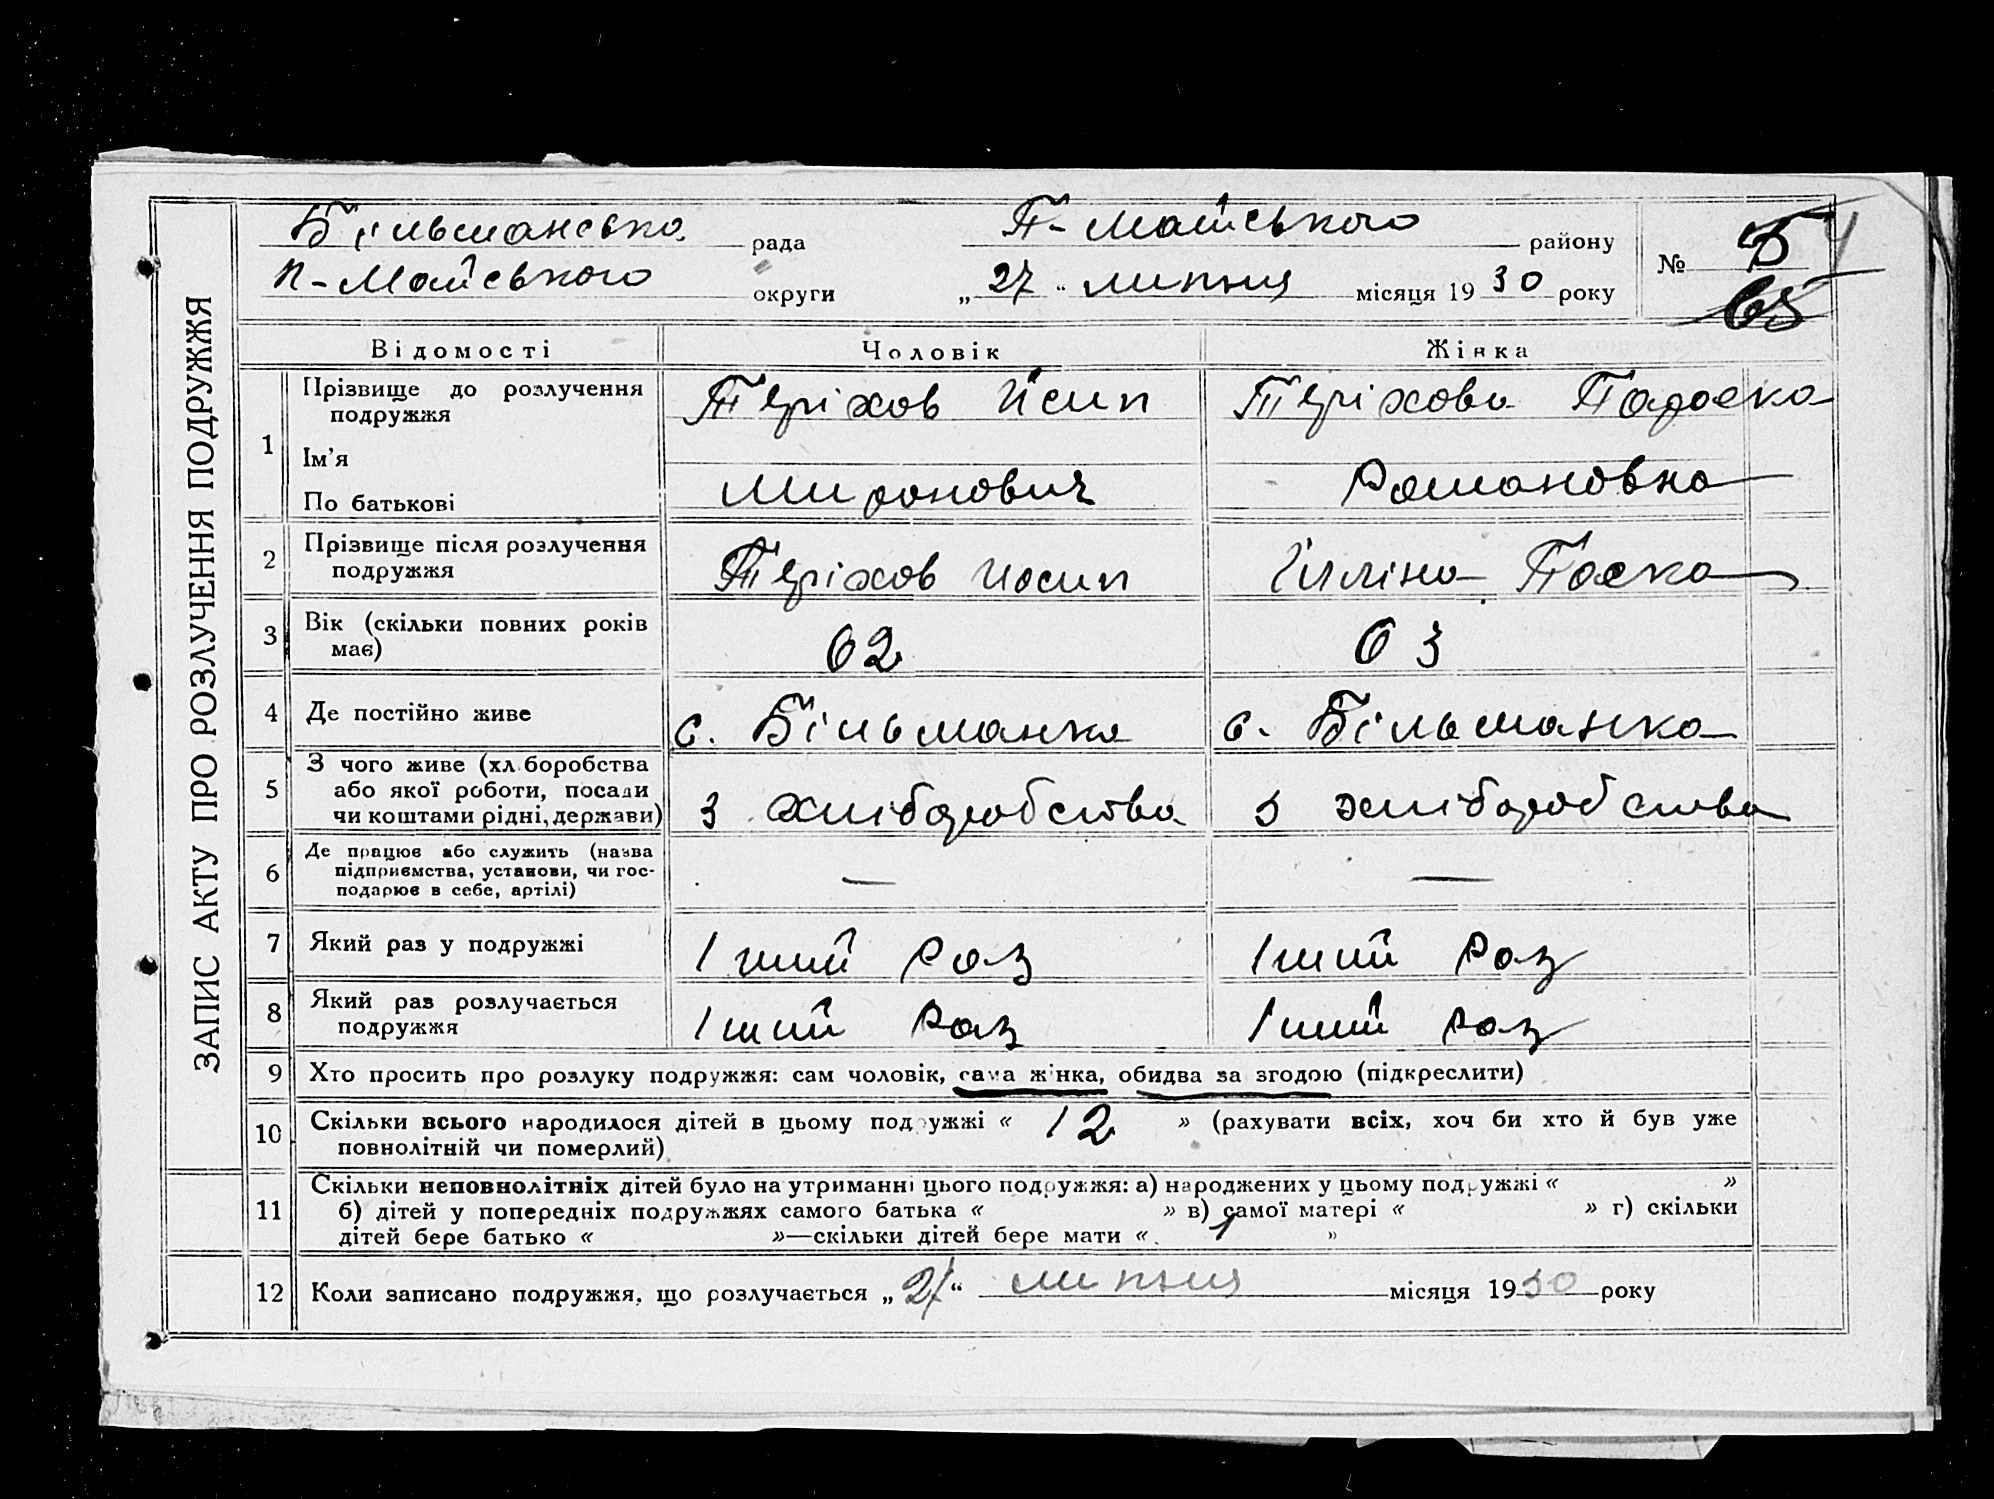 ЗАПИС АКТУ ПРО РОЗЛУЧЕННЯ ПОДРУЖЖЯ
Більманська рада П-Майського району
П-Майського округи „27“ липня місяця 1930 року
№ 65
Відомості Чоловік Жінка
1 Прізвище до розлучення подружжя Теріхов Йсип Теріхова Параска
Ім'я
По батькові Миронович Романовна
2 Прізвище після розлучення подружжя Теріхов Иосип
3 Вік (скільки повних років має) 62 63
4 Де постійно живе с. Більманка с. Більманка
5 З чого живе (хл.боробства або якої роботи, посади чи коштами рідні, держави) з хліборобства з хліборобства
6 Де працює або служить (назва підприємства, установи, чи господарює в себе, артілі) — —
7 Який раз у подружжі 1ший раз 1ший раз
8 Який раз розлучається подружжя 1ший раз 1ший раз
9 Хто просить про розлуку подружжя: сам чоловік, сама жінка, обидва за згодою (підкреслити)
10 Скільки всього народилося дітей в цьому подружжі « 12 » (рахувати всіх, хоч би хто й був уже
повнолітній чи померлий)
11 Скільки неповнолітніх дітей було на утриманні цього подружжя: а) народжених у цьому подружжі « »
б) дітей у попередніх подружжях самого батька « » в) самої матері « » г) скільки
дітей бере батько « »—скільки дітей бере мати « 1 »
12 Коли записано подружжя, що розлучається „27“ липня місяця 1930 року